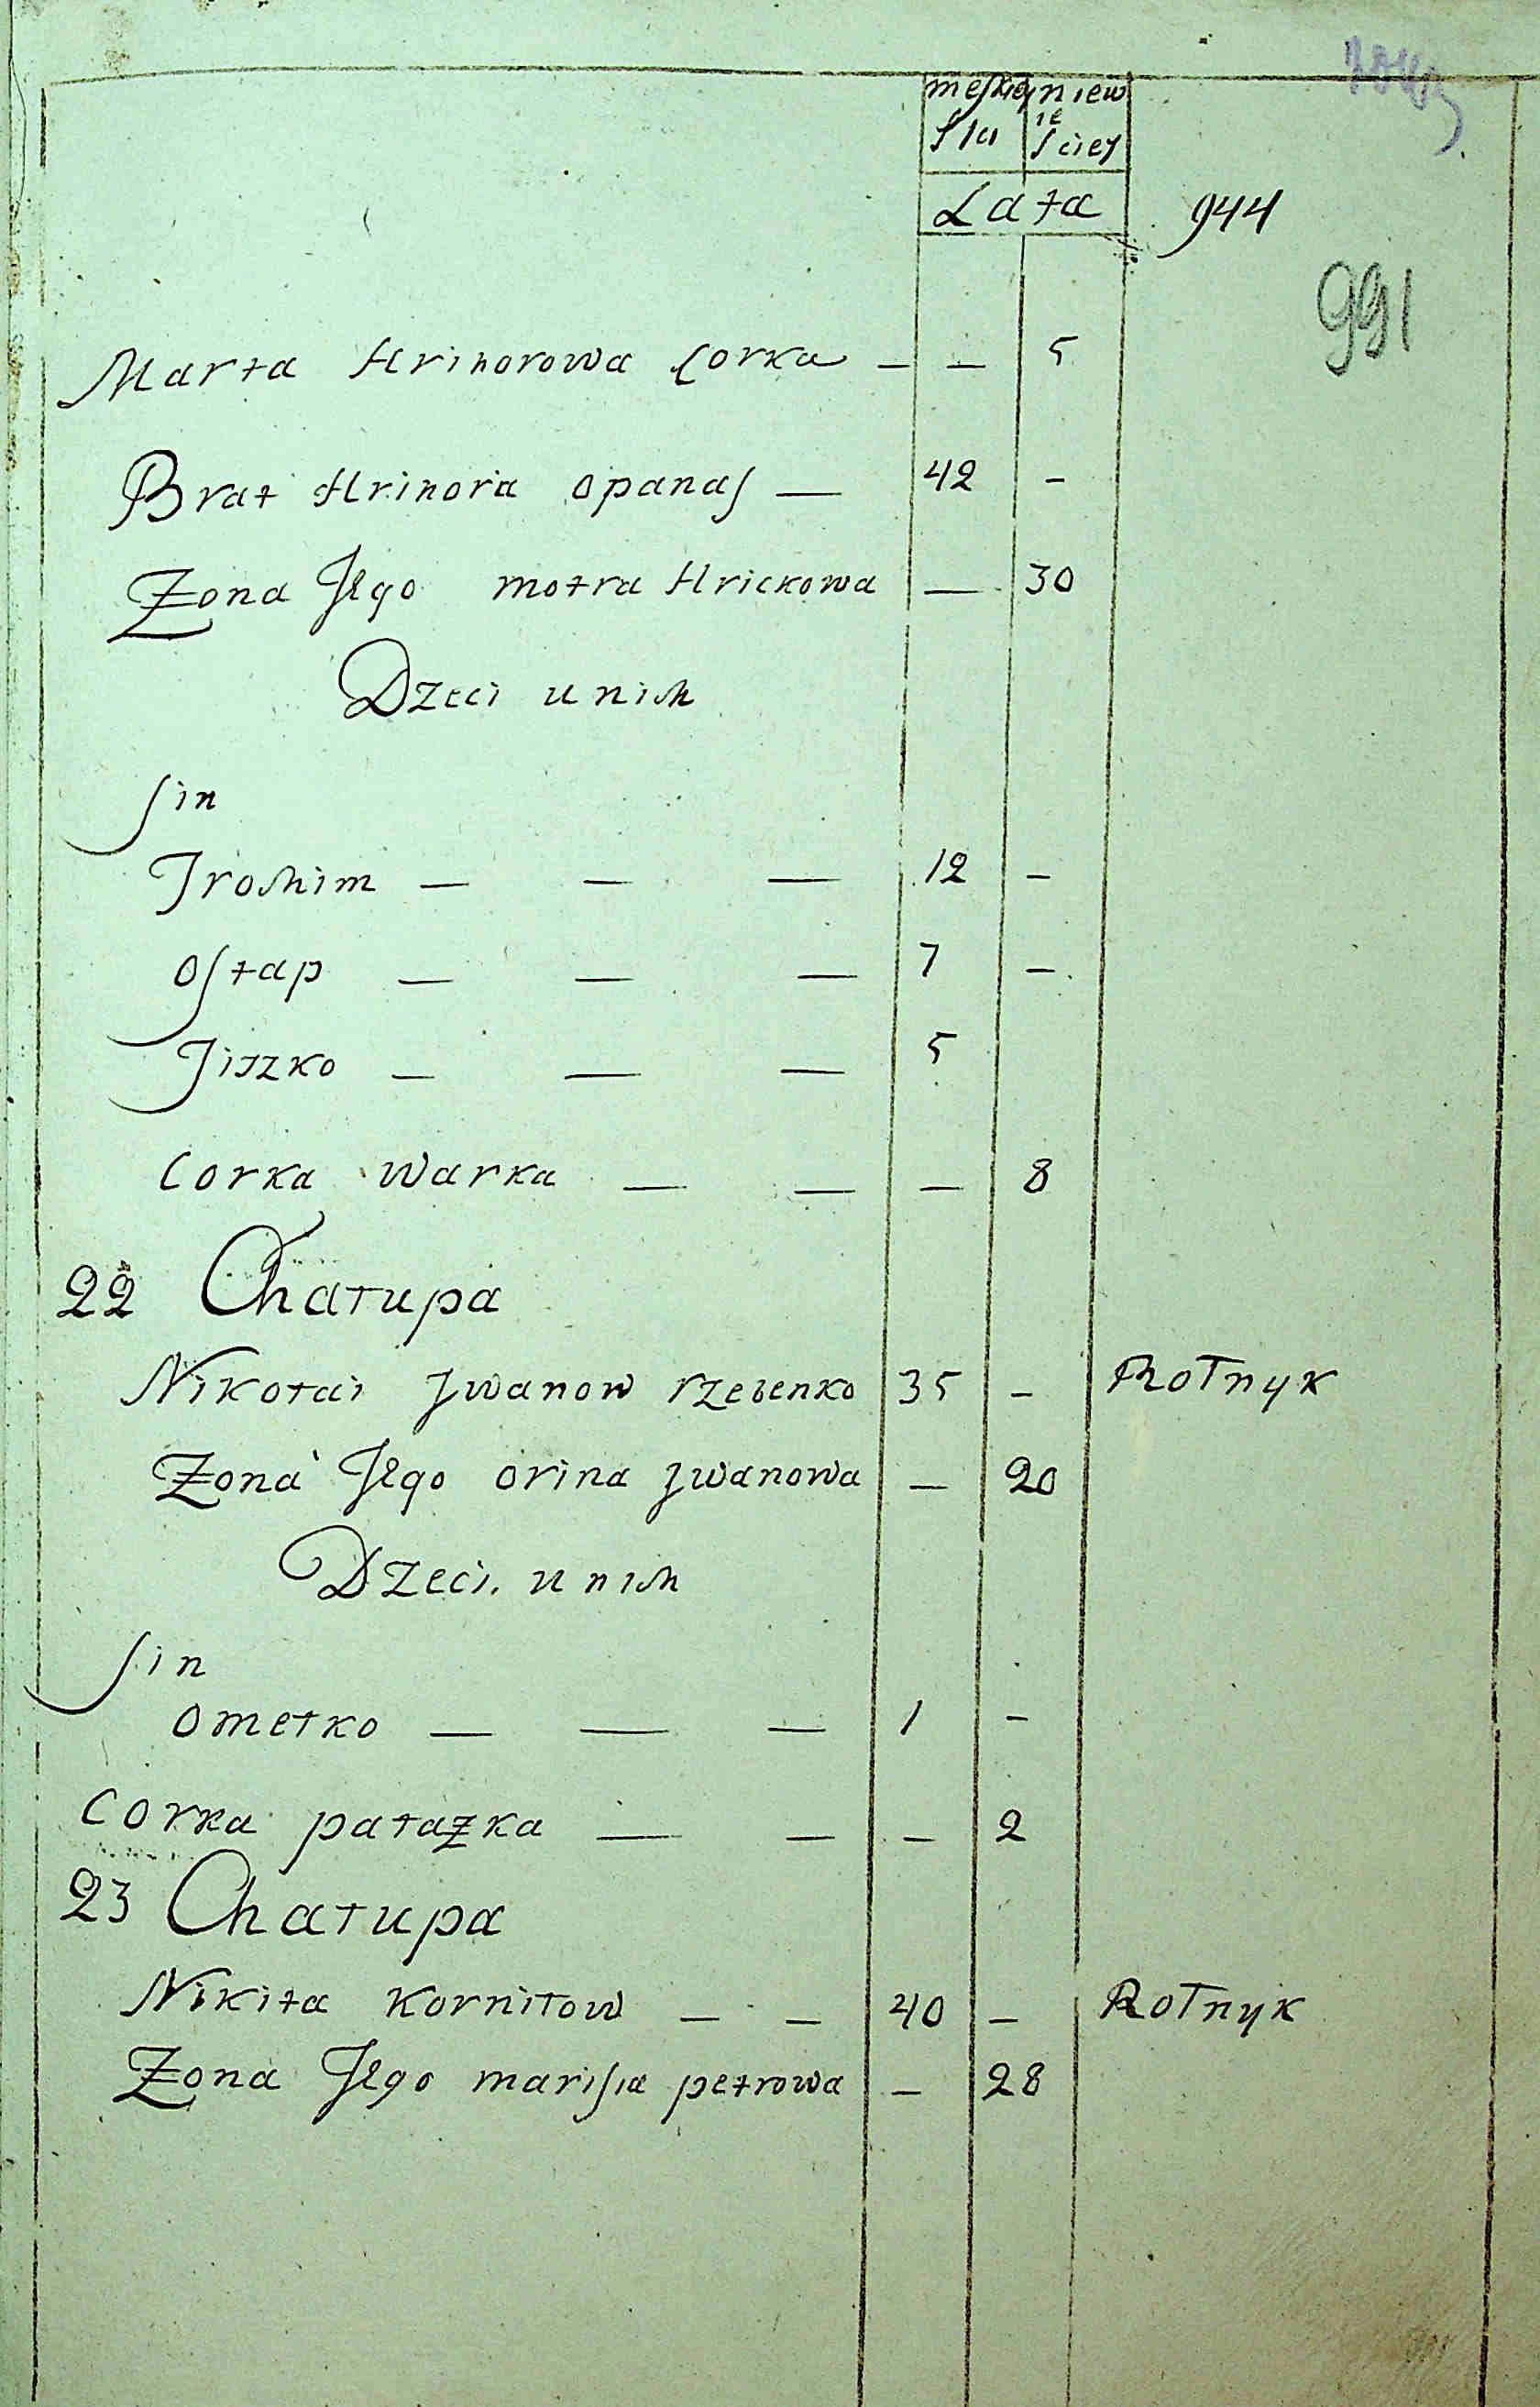 męskie niew
sła ie sciey
Lata 944
991
Marta Hrihorowa Corka — — 5
Brat Hrihora opanas — 42 -
Żona Jego motra Hrickowa — 30
Dzeci u nich
sin
Trochim — — — 12 -
ostap — — — 7 -
Jiszko — — — 5
Corka warka — — — 8
22 Chałupa
Nikołai Jwanow rzebenko 35 - Rolnyk
Żona Jego orina Jwanowa — 20
Dzeci u nich
sin
ometko — — — 1 -
Corka pałażka — — - 2
23 Chałupa
Nikita Korniłow — — 40 - Rolnyk
Żona Jego marisia petrowa - 28